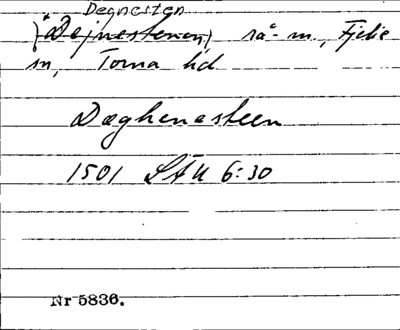 Degnesten
(Dejnestenen) rå-m., Fjelie
sn, Torna hd
Dæghenesteen
1501 LÄU 6:30
Nr 5836.